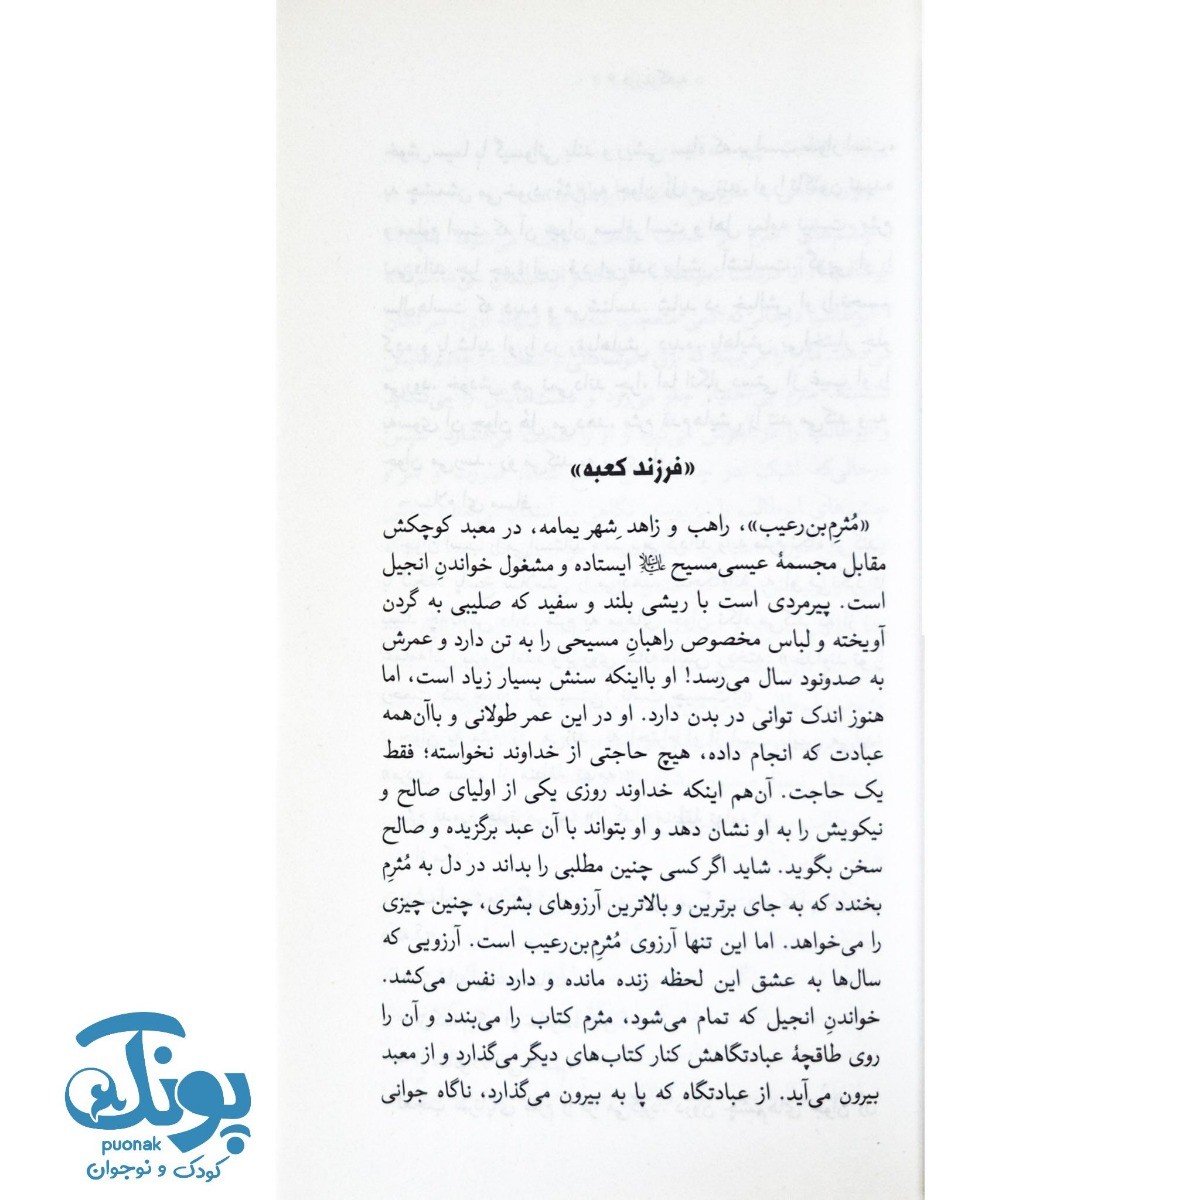 «فرزند کعبه»
«مُثرِم‌بن‌رعیب»، راهب و زاهدِ شهر یمامه، در معبد کوچکش
مقابل مجسمهٔ عیسی‌مسیح علیه‌السلام ایستاده و مشغول خواندنِ انجیل
است. پیرمردی است با ریشی بلند و سفید که صلیبی به گردن
آویخته و لباس مخصوص راهبانِ مسیحی را به تن دارد و عمرش
به صدونود سال می‌رسد! او بااینکه سنش بسیار زیاد است، اما
هنوز اندک توانی در بدن دارد. او در این عمر طولانی و باآن‌همه
عبادت که انجام داده، هیچ حاجتی از خداوند نخواسته؛ فقط
یک حاجت. آن‌هم اینکه خداوند روزی یکی از اولیای صالح و
نیکویش را به او نشان دهد و او بتواند با آن عبد برگزیده و صالح
سخن بگوید. شاید اگر کسی چنین مطلبی را بداند در دل به مُثرِم
بخندد که به جای برترین و بالاترین آرزوهای بشری، چنین چیزی
را می‌خواهد. اما این تنها آرزوی مُثرِم‌بن‌رعیب است. آرزویی که
سال‌ها به عشق این لحظه زنده مانده و دارد نفس می‌کشد.
خواندنِ انجیل که تمام می‌شود، مثرم کتاب را می‌بندد و آن را
روی طاقچهٔ عبادتگاهش کنار کتاب‌های دیگر می‌گذارد و از معبد
بیرون می‌آید. از عبادتگاه که پا به بیرون می‌گذارد، ناگاه جوانی
پونک
puonak
کودک و نوجوان